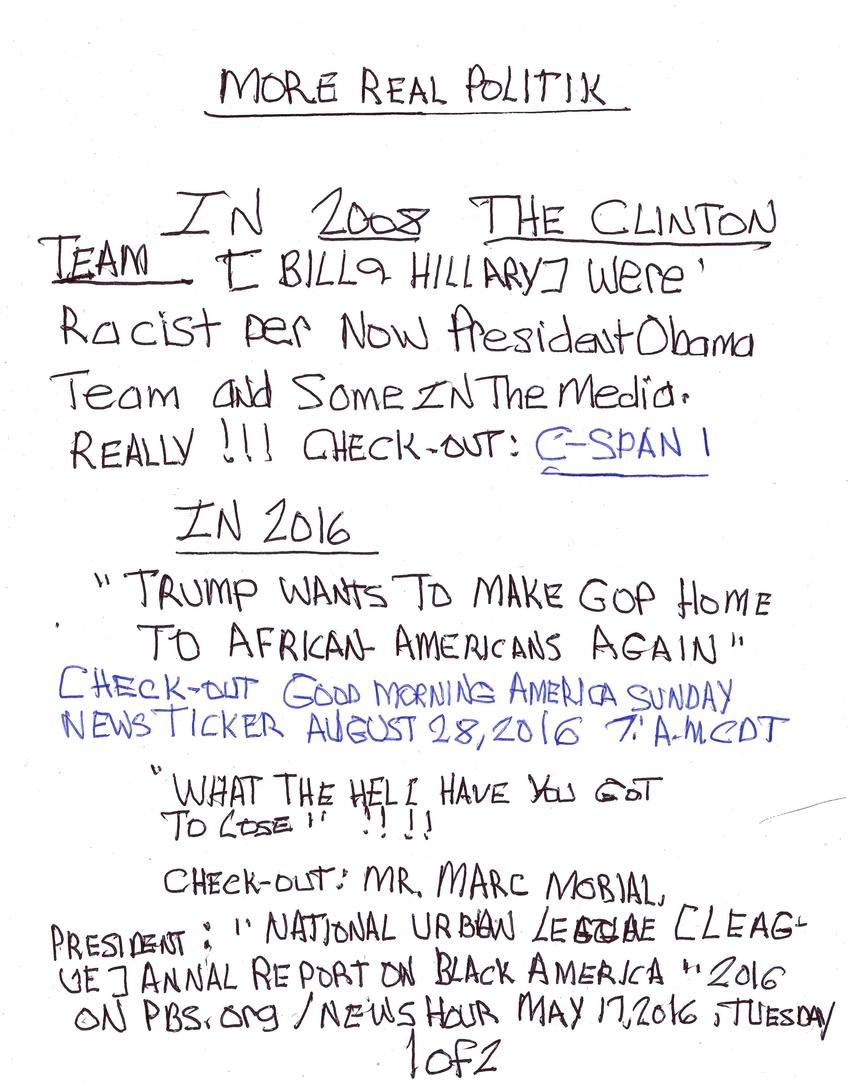 MORE REAL POLITIK
IN 2008 THE CLINTON
TEAM [ BILL & HILLARY] Were'
Racist per Now President Obama
Team and Some IN The Media.
REALLY !!! CHECK-OUT: C-SPAN 1
IN 2016
" TRUMP WANTS TO MAKE GOP HOME
TO AFRICAN- AMERICANS AGAIN "
CHECK-OUT GOOD MORNING AMERICA SUNDAY
NEWS TICKER AUGUST 28, 2016 7: A.M CDT
"WHAT THE HELL HAVE YOU GOT
TO LOSE " !!!!
CHECK-OUT: MR. MARC MORIAL,
PRESIDENT : " NATIONAL URBAN LEAGUE [LEAG-
UE] ANNAL REPORT ON BLACK AMERICA " 2016
ON PBS.org / NEWS HOUR MAY 17, 2016 , TUESDAY
1 of 2